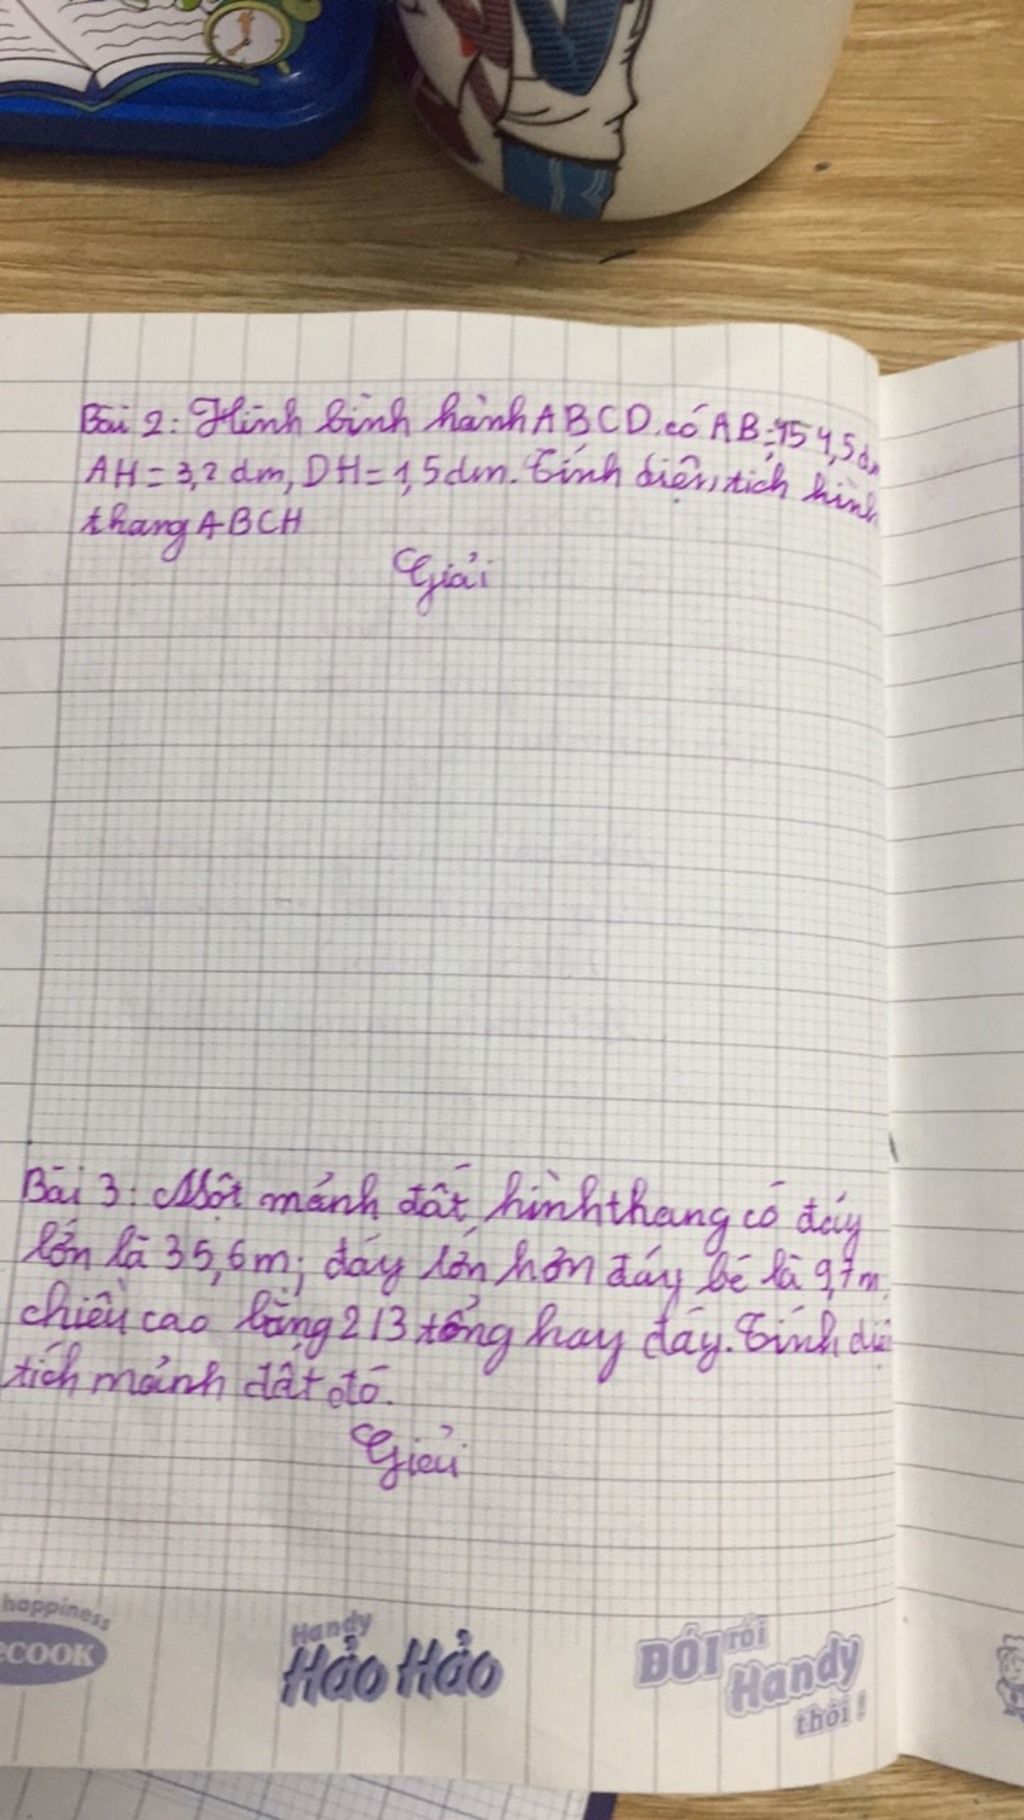 Bài 2: Hình bình hành ABCD có AB = 4,5 dm
AH = 3,2 dm, DH = 1,5 dm. Tính diện tích hình
thang ABCH
Giải
Bài 3: Một mảnh đất hình thang có đáy
lớn là 35,6m; đáy lớn hơn đáy bé là 9,7m
chiều cao bằng 213 tổng hay đáy. Tính diệ
tích mảnh đất đó.
Giải
happiness
COOK
Handy
Hảo Hảo
ĐÓI rồi
Handy
thôi!